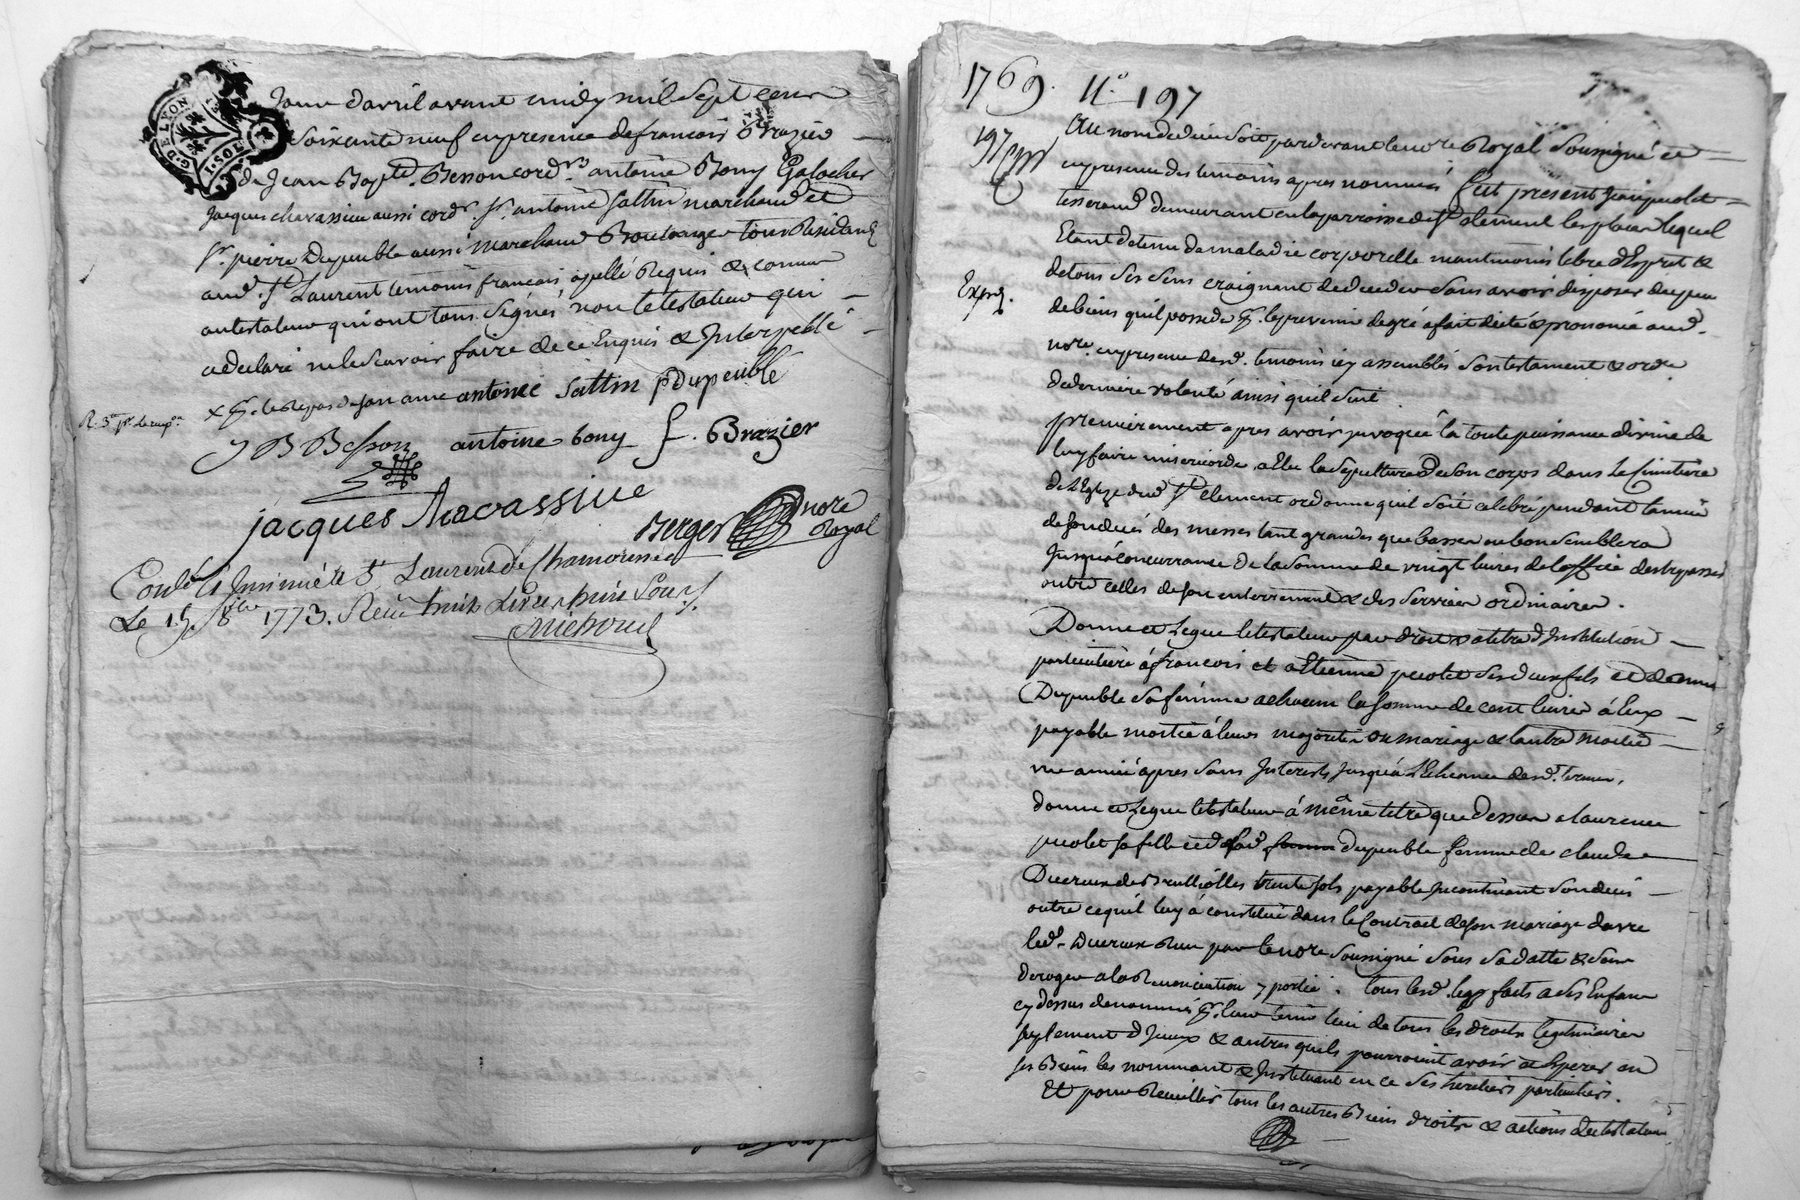 G. DE LYON
1. SOL
Jour d'avril avant midy mil sept cens
soixante neuf en presence de francois Brazier
de Jean Bapte. Besson cordr. antoine Bony Galocher
Jacques chavassieu aussi cordr. Sr. antoine Sattin marchand et
Sr. pierre Dupeuble aussi marchand Boulanger tous Residants
aud. St. Laurent temoins francois apellé Requis & connus
au testateur qui ont tous signés non le testateur qui
a declaré ne le scavoir faire de ce Enquis & Interpellé
x pr. le Repos de son ame antoine Sattin p dupeuble
R. 3
J B Besson antoine bony f. Brazier
jacques chavassiue
Berger nore
Royal
Conlé & Insinué à St Laurent de Chamousset
Le 15. 8bre 1773. Reçu huit Livres huit Sous
Michoud
1769. N.° 197
197
Au nom de dieu soit pardevant le nore Royal soussigné et
en presence des temoins apres nommés fut present Jean pucolet
tisserand demeurant en la parroisse de St. clement les places lequel
Etant detenu de maladie corporelle neantmoins libre d'Esprit &
de tous ses sens craignant de deceder sans avoir disposer du peu
Expn.
de biens quil possede pr. le prevenir de gré a fait dicté & prononcé aud.
nore. en presence desd. temoins icy assemblés son testament & ordre
de derniere volonté ainsi quil suit
premierement apres avoir invoqué la toute puissance divine de
luy faire misericorde a Elu la sepulture de son corps dans le Cimetiere
de l'Eglize dud. St. clement ordonne quil soit celebré pendant l'année
de son decés des messes tant grandes que basses ou bon semblera
Jusqu'à concurrance de la somme de vingt livres de l'office des trepassés
outre celles de son enterrement & des services ordinaires.
Donne et Legue le testateur par droit & a titre d'Institution
particuliere à francois et a Etienne pucolet ses deux fils et de
Dupeuble sa femme a chacun la somme de cent livres à Eux
payable moitié à leurs majorités ou mariage & l'autre moitié
une année apres sans Interests Jusqu'à l'Echeance desd. termes,
donne et Legue le testateur à même titre que dessus a laurence
pucolet sa fille et de lad. Dupeuble femme de claude
Ducreux des Brulliolles trente sols payable incontinant son decés
outre ce quil luy à constitué dans le Contract de son mariage avec
led. Ducreux Reçu par le nore soussigné sous sa datte & sans
deroger a la Renonciation y portée. tous lesd. legs faits a ses Enfans
cy dessus denommés pr. leur tenir lieu de tous les droits legitimaires
suplement d'Iceux & autres quils pourroient avoir & Esperer en
ses Biens les nommant & Instituant en ce ses heritiers particuliers.
Et pour Recueillir tous les autres Biens droits & actions du testateur